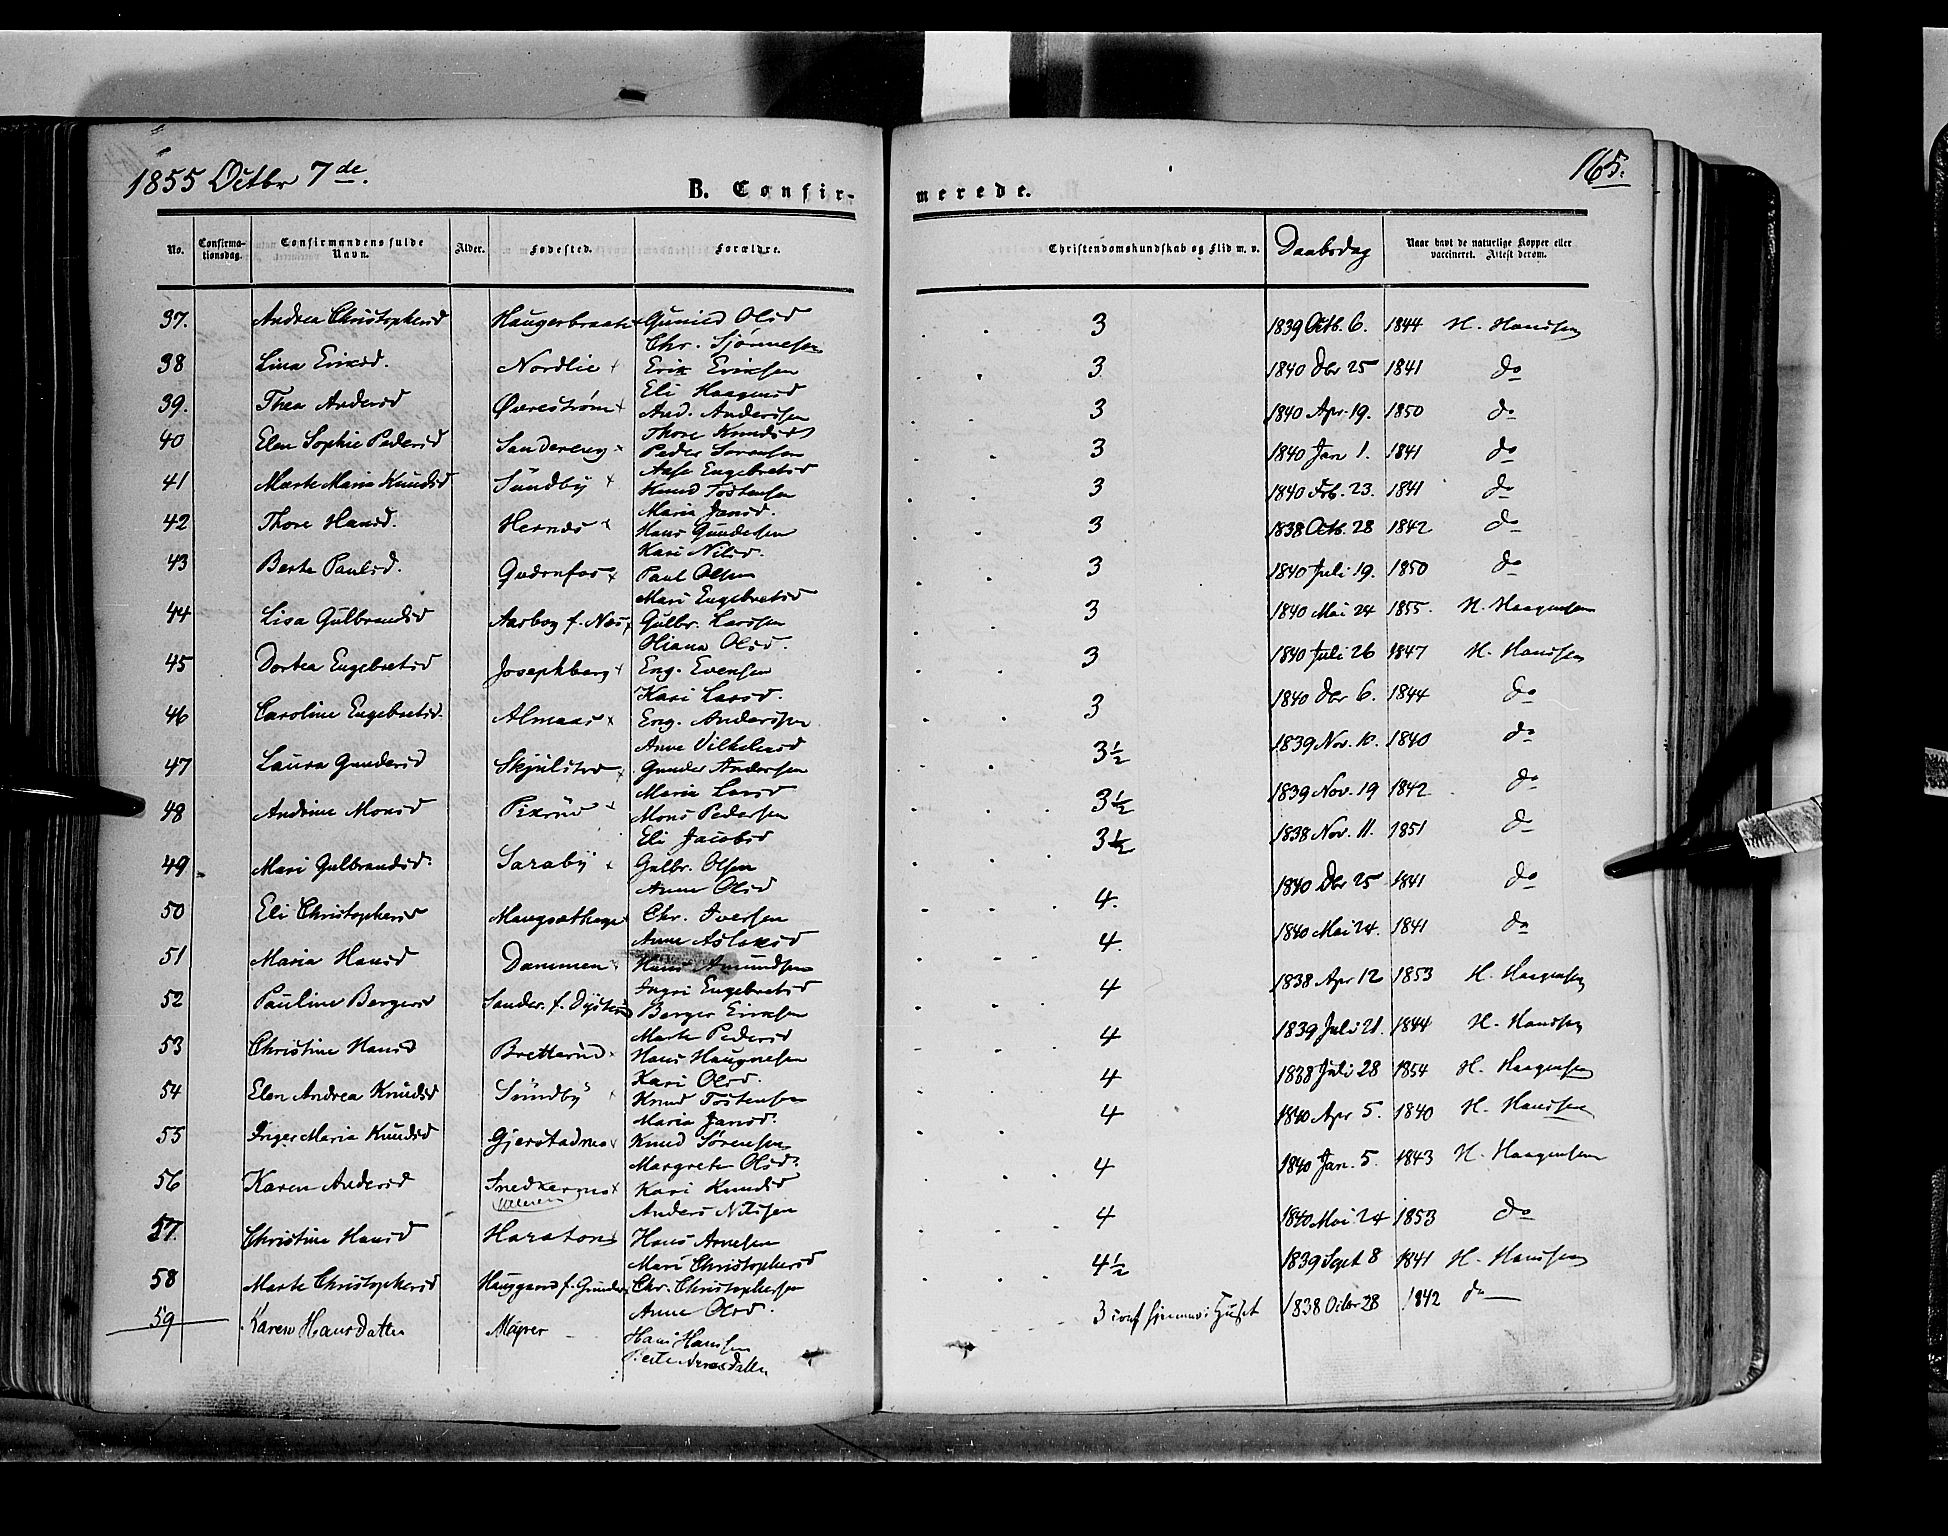 1855 Octbr 7de.
165.
B. Confirmerede.
No. Confirmationsdag. Confirmandens fulde Navn. Alder. Fødested. Forældre. Christendomskundskab og Flid m. v. Daabsdag Naar havt de naturlige Kopper eller vaccineret. Attest derom.
37. Andrea Christophersd Haugerbraaten Gunild Olsd 3 1839 Octb. 6. 1844 H. Hanssen
Chr. Sjønnesen
38 Lina Eriksd. Nordlie Erik Eriksen 3 1840 Dbr 25 1841 do
Eli Haagensd
39. Thea Andersd Øvrestrøm And. Anderssen 3 1840 Apr. 19. 1850 do
Thore Knudsd
40 Elen Sophie Pedersd Sandereng Peder Sørensen 3 1840 Jan 1. 1841 do
Aase Engebretsd
41 Marte Maria Knudsd Sundby Knud Tostensen 3 1840 Feb. 23. 1841 do
Maria Jansd.
42 Thore Hansd. Hernæs Hans Gundersen 3 1838 Octb. 28 1842 do
Kari Nilsd.
43 Berte Paulsd. Gudsnfos Paul Olsen 3 1840 Juli 19. 1850 do
Mari Engebretsd
44 Lisa Gulbrandsd Aasborg f. Næs Gulbr. Larssen 3 1840 Mai 24 1855. H. Haagensen
Oliana Olsd.
45 Dortea Engebretsd Josephberg Eng. Evensen 3 1840 Juli 26 1847 H. Hanssen
Kari Larsd.
46 Caroline Engebretsd. Almaas Eng. Anderssen 3 1840 Dbr 6. 1844 do
Anne Vilhelmsd
47 Laura Gundersd Skjulstad Gunder Andersen 3½ 1839 Nov. 10. 1840 do
Maria Larsd
48 Andrine Monsd Pikrud Mons Pedersen 3½ 1839 Nov. 19 1842 do
Eli Jacobsd
49 Mari Gulbrandsd. Saraby Gulbr. Olsen 3½ 1838 Nov. 11. 1851 do
Anne Olsd
50 Eli Christophersd Mangsethagen Chr. Iversen 4. 1840 Dbr 25 1841 do
Anne Aslaksd
51 Maria Hansd Dammen Hans Amundsen 4. 1840 Mai 24. 1841 do
Ingri Engebretsd
52 Pauline Bergersd Sander. f. Dystrud Berger Eriksen 4 1838 Apr 12 1853 H. Haagensen
Marte Pedersd
53 Christine Hansd Bretterud Hans Haagensen 4 1839 Juli 21. 1844 H. Hanssen
Kari Olsd.
54 Elen Andrea Knudsd Sundby Knud Tostensen 4 1838 Juli 28 1854 H. Haagensen
Maria Jansd.
55 Inger Maria Knudsd Gjerstadnæs Knud Sørensen 4 1840 Apr 5. 1840 H. Hanssen
Margrete Olsd.
56 Karen Andersd Snekkernæs Kari Knudsd 4 1840 Jan. 5. 1843 H. Haagensen
Anders Nilssen
57. Christine Hansd Haraton Hans Arnesen 4 1840 Mai 24 1853 do
Mari Christophersd
58 Marte Christophersd Haugaard f. Gunder Chr. Christophersen 4½ 1839 Sept 8 1841 H. Hanssen
Anne Olsd.
59 Karen Hansdatter Mayrer Hans Hanssen 3 conf hjemme i Huset 1838 Octbr 28 1842 do
Berte Arnesdatter